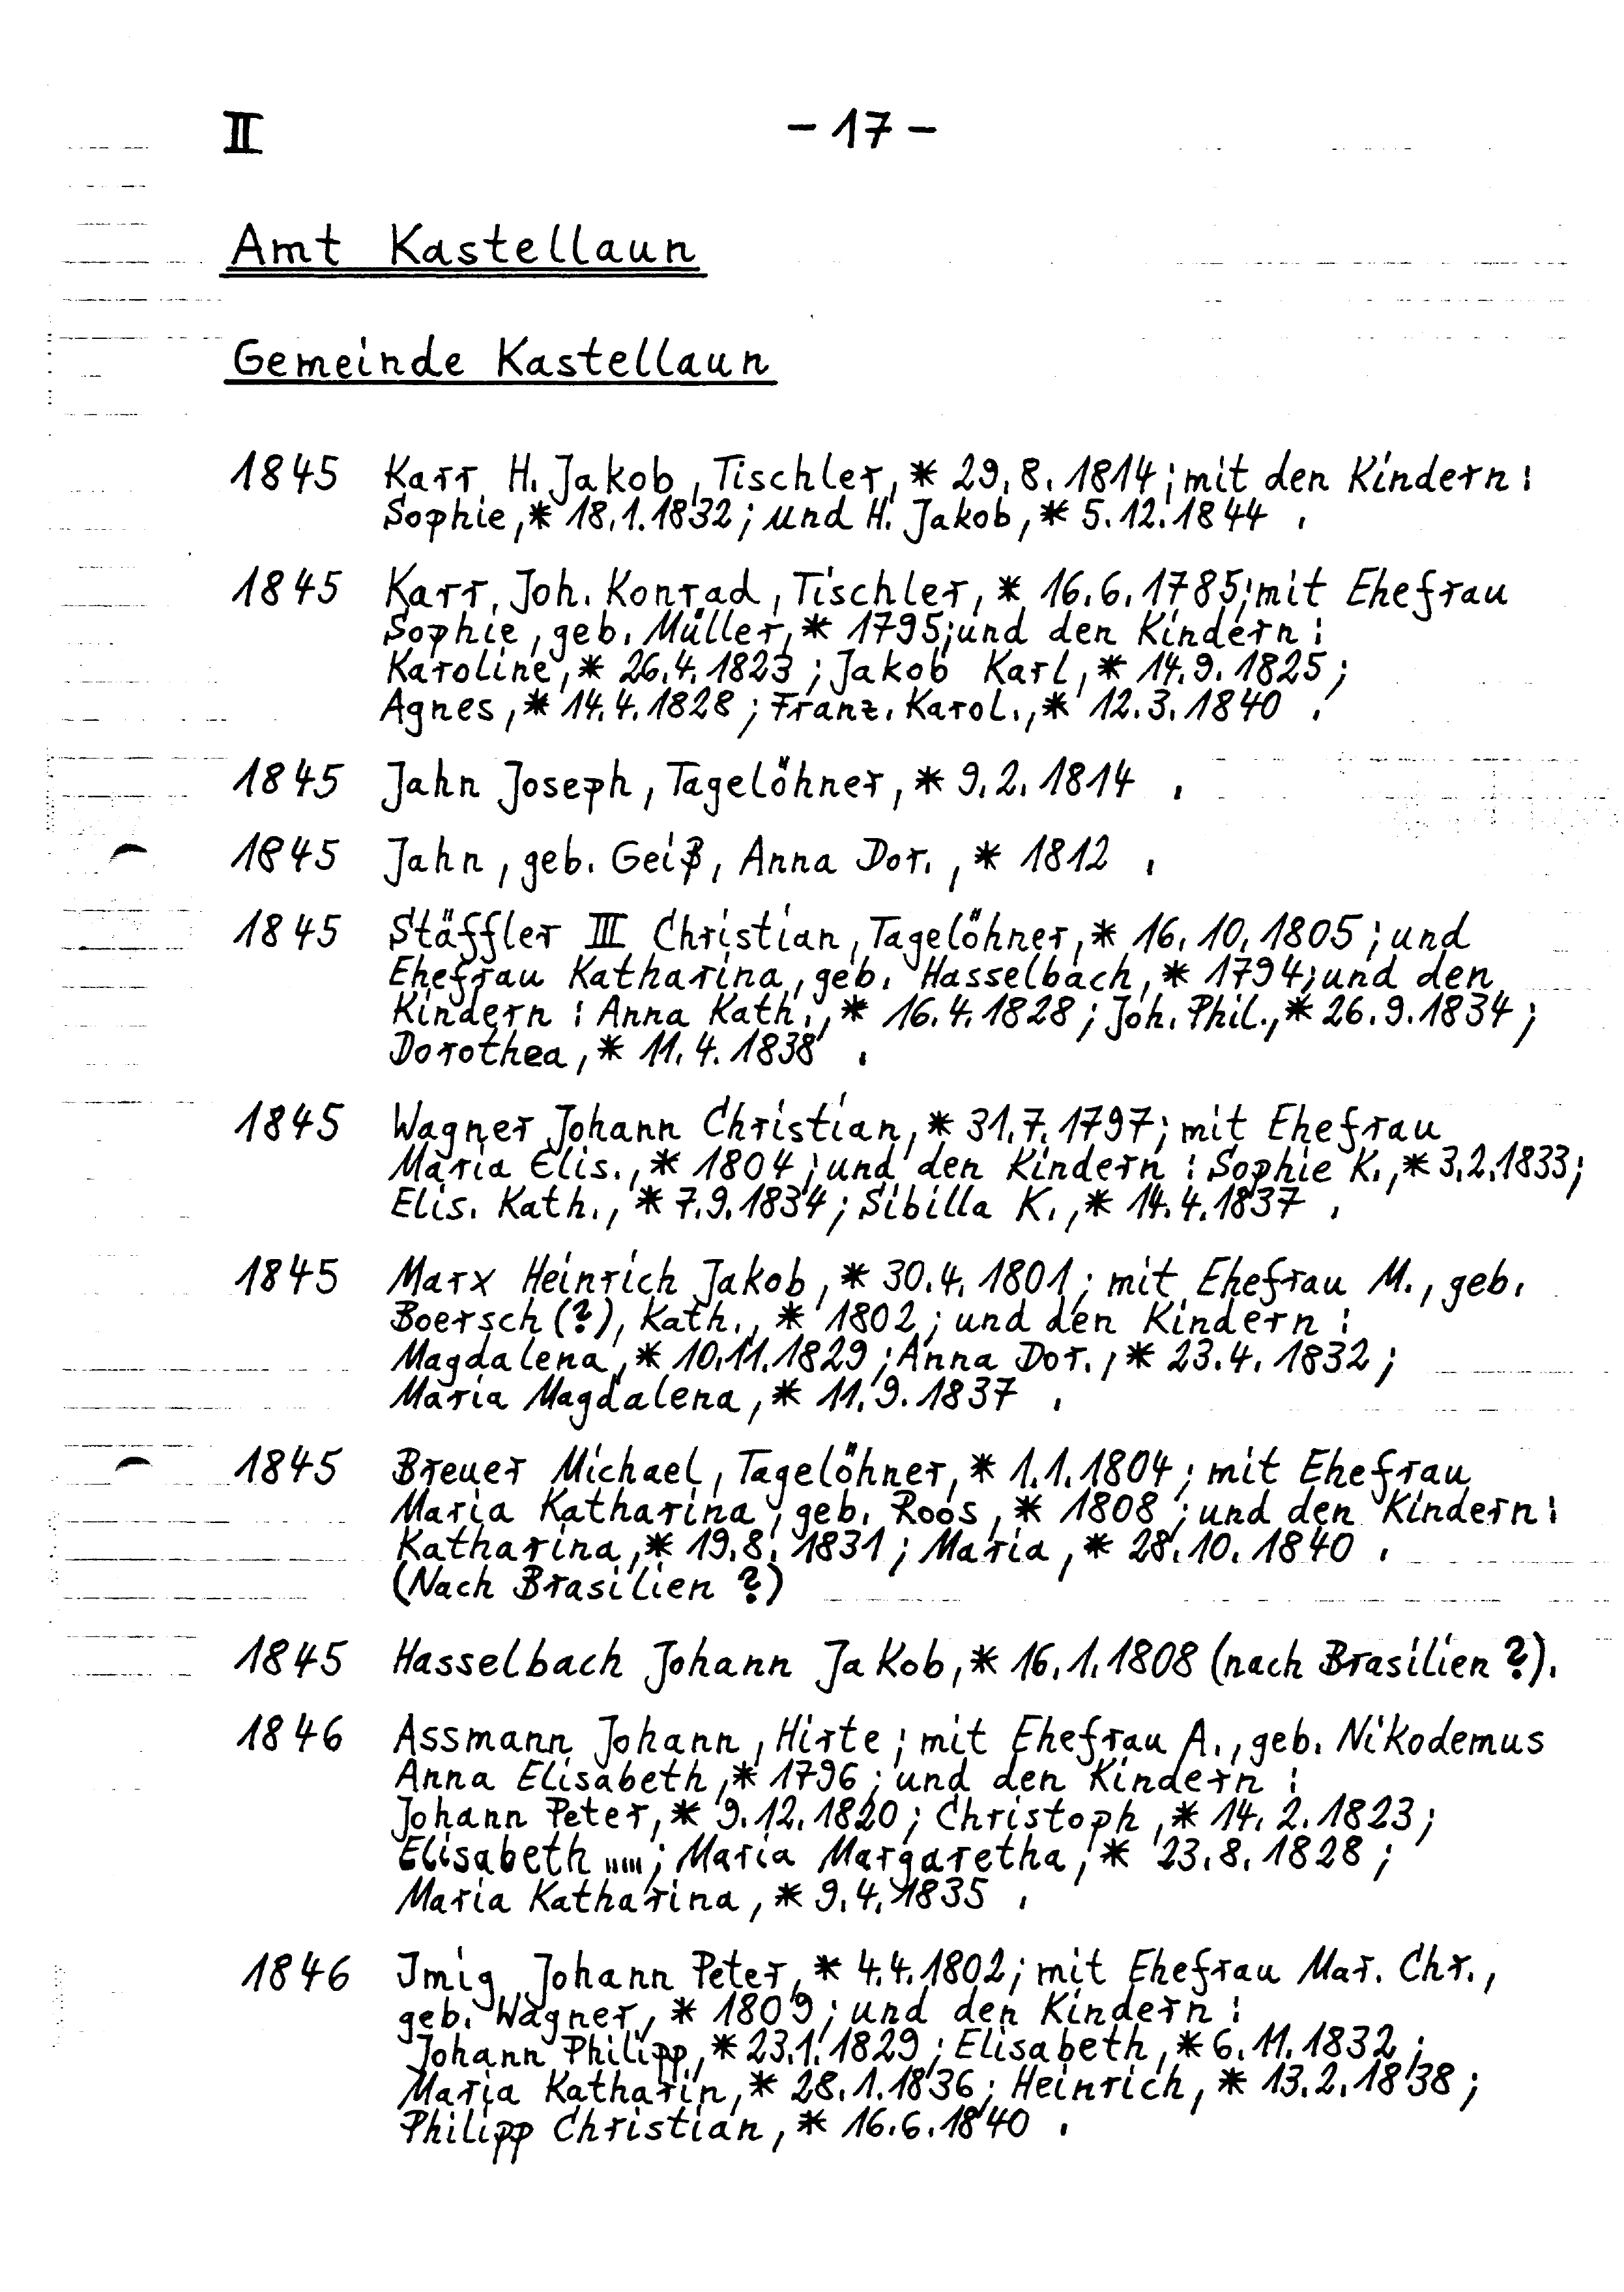 II - 17 -
Amt Kastellaun
Gemeinde Kastellaun
1845 Karr H. Jakob, Tischler, * 29.8.1814; mit den Kindern:
Sophie, * 18.1.1832; und H. Jakob, * 5.12.1844 .
1845 Karr, Joh. Konrad, Tischler, * 16.6.1785; mit Ehefrau
Sophie, geb. Müller, * 1795; und den Kindern:
Karoline, * 26.4.1823; Jakob Karl, * 14.9.1825;
Agnes, * 14.4.1828; Franz. Karol., * 12.3.1840 .
1845 Jahn Joseph, Tagelöhner, * 9.2.1814 .
1845 Jahn, geb. Geiß, Anna Dor., * 1812 .
1845 Stäffler III Christian, Tagelöhner, * 16.10.1805; und
Ehefrau Katharina, geb. Hasselbach, * 1794; und den
Kindern: Anna Kath., * 16.4.1828; Joh. Phil., * 26.9.1834;
Dorothea, * 11.4.1838 .
1845 Wagner Johann Christian, * 31.7.1797; mit Ehefrau
Maria Elis., * 1804; und den Kindern: Sophie K., * 3.2.1833;
Elis. Kath., * 7.9.1834; Sibilla K., * 14.4.1837 .
1845 Marx Heinrich Jakob, * 30.4.1801; mit Ehefrau M., geb.
Boersch (?), Kath., * 1802; und den Kindern:
Magdalena, * 10.11.1829; Anna Dor., * 23.4.1832;
Maria Magdalena, * 11.9.1837 .
1845 Breuer Michael, Tagelöhner, * 1.1.1804; mit Ehefrau
Maria Katharina, geb. Roos, * 1808; und den Kindern:
Katharina, * 19.8.1831; Maria, * 28.10.1840 .
(Nach Brasilien ?)
1845 Hasselbach Johann Jakob, * 16.1.1808 (nach Brasilien ?).
1846 Assmann Johann, Hirte; mit Ehefrau A., geb. Nikodemus
Anna Elisabeth, * 1796; und den Kindern:
Johann Peter, * 9.12.1820; Christoph, * 14.2.1823;
Elisabeth ,,,,,; Maria Margaretha, * 23.8.1828;
Maria Katharina, * 9.4.1835 .
1846 Imig Johann Peter, * 4.4.1802; mit Ehefrau Mar. Chr.,
geb. Wagner, * 1809; und den Kindern:
Johann Philipp, * 23.1.1829; Elisabeth, * 6.11.1832;
Maria Katharin, * 28.1.1836; Heinrich, * 13.2.1838;
Philipp Christian, * 16.6.1840 .